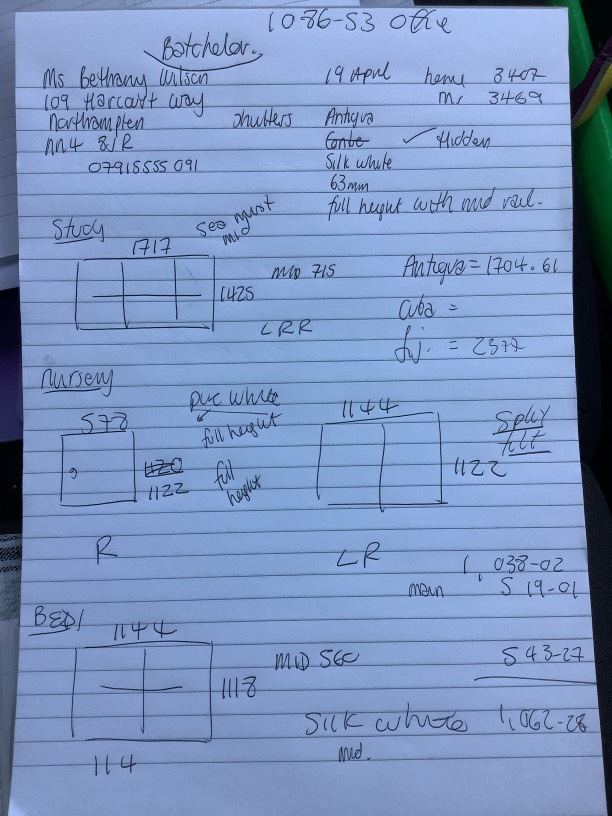 1086-53 Office
Batchelor..
Ms Bethany Wilson 19 April home 3407
109 Harcourt Way Mr 3469
Northampton shutters Antigua
NN4 8JR Conte ✓ Hidden
07915555 091 Silk white
63mm
full height with mid rail.
Study
1717
1425
MID 715 Antigua = 1704.61
LRR Cuba =
fij. = 2372
Nursery
578 PVC white 1144 Split
full height tilt
1120
1122 full 1122
height
R LR 1,038-02
main 519-01
BED1
1144
1118 MID 560 543-27
Silk white 1,062-28
mid.
114